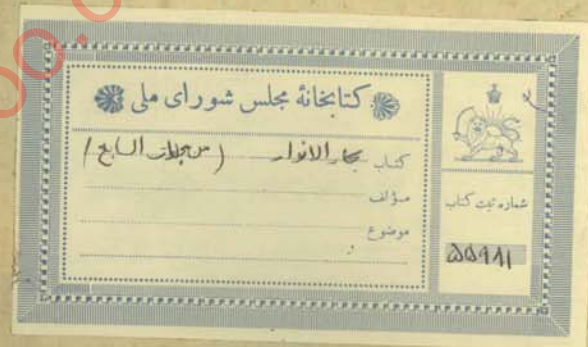 کتابخانهٔ مجلس شورای ملی
کتاب بحار الانوار ( من مجلدات السابع )
مؤلف
موضوع
شماره ثبت کتاب
۵۵۹۸۱